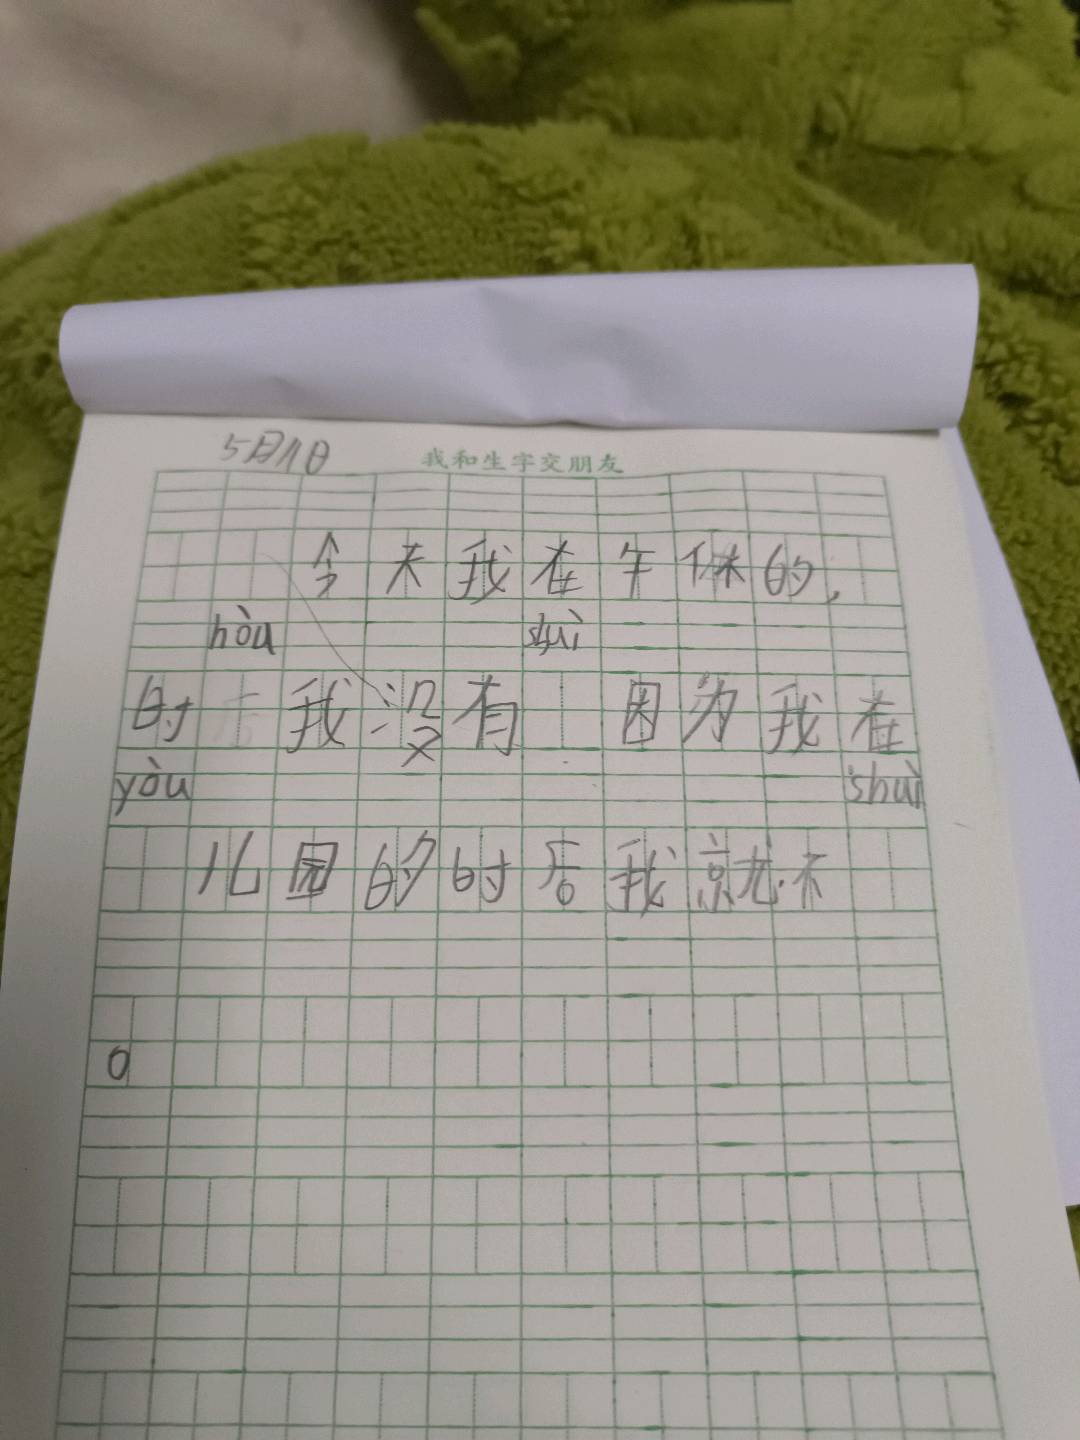 5月1日
我和生字交朋友
今天我在午休的,
hòu shuì
时 我没有 因为我在
yòu shuì
儿园的时后我就不
。